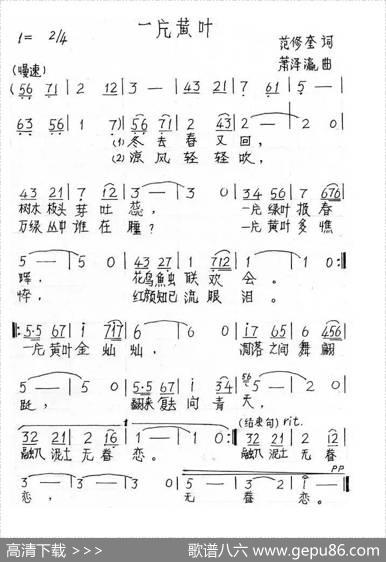 一片黄叶
1= 2/4
范修奎 词
萧泽瀛 曲
(慢速)
(56 71 | 2 12 | 3 — | 43 21 | 7 61 | 5 — |
63 56 | 1 7) | 56 71 | 2 43 | 2 — | 2 0 |
(1) 冬去春又回,
(2) 凉风轻轻吹,
43 21 | 7 12 | 3 — | 3 0 | 34 56 | 7 676 |
树木枝头芽吐蕊, 一片绿叶报春
万绿丛中谁在睡? 一片黄叶多憔
5 — | 5 0 | 43 27 | 1 712 | 1 — | 1 0 :|
晖, 花鸟鱼虫联欢会。
悴, 红颜知己流眼泪。
|: 5·5 67 | i 717 | 6 — | 6 0 | i7 65 | 6 456 |
一片黄叶金灿灿, 凋落之间舞翩
5 — | 5 0 | 5·5 67 | i 34 | 5 — | 2 0 |
跹, 翻来复去向青天,
1
(结束句) rit.
32 21 | 2 16 | 1 — | 1 0 :| 32 21 | 2 12 |
融入泥土无眷恋。 融入泥土无眷
pp
3 — | 3 — | 3 0 | 5 — | 3 2 | 1 — ||
恋, 无眷恋。
高清下载 >>>
歌谱八六 www.gepu86.com